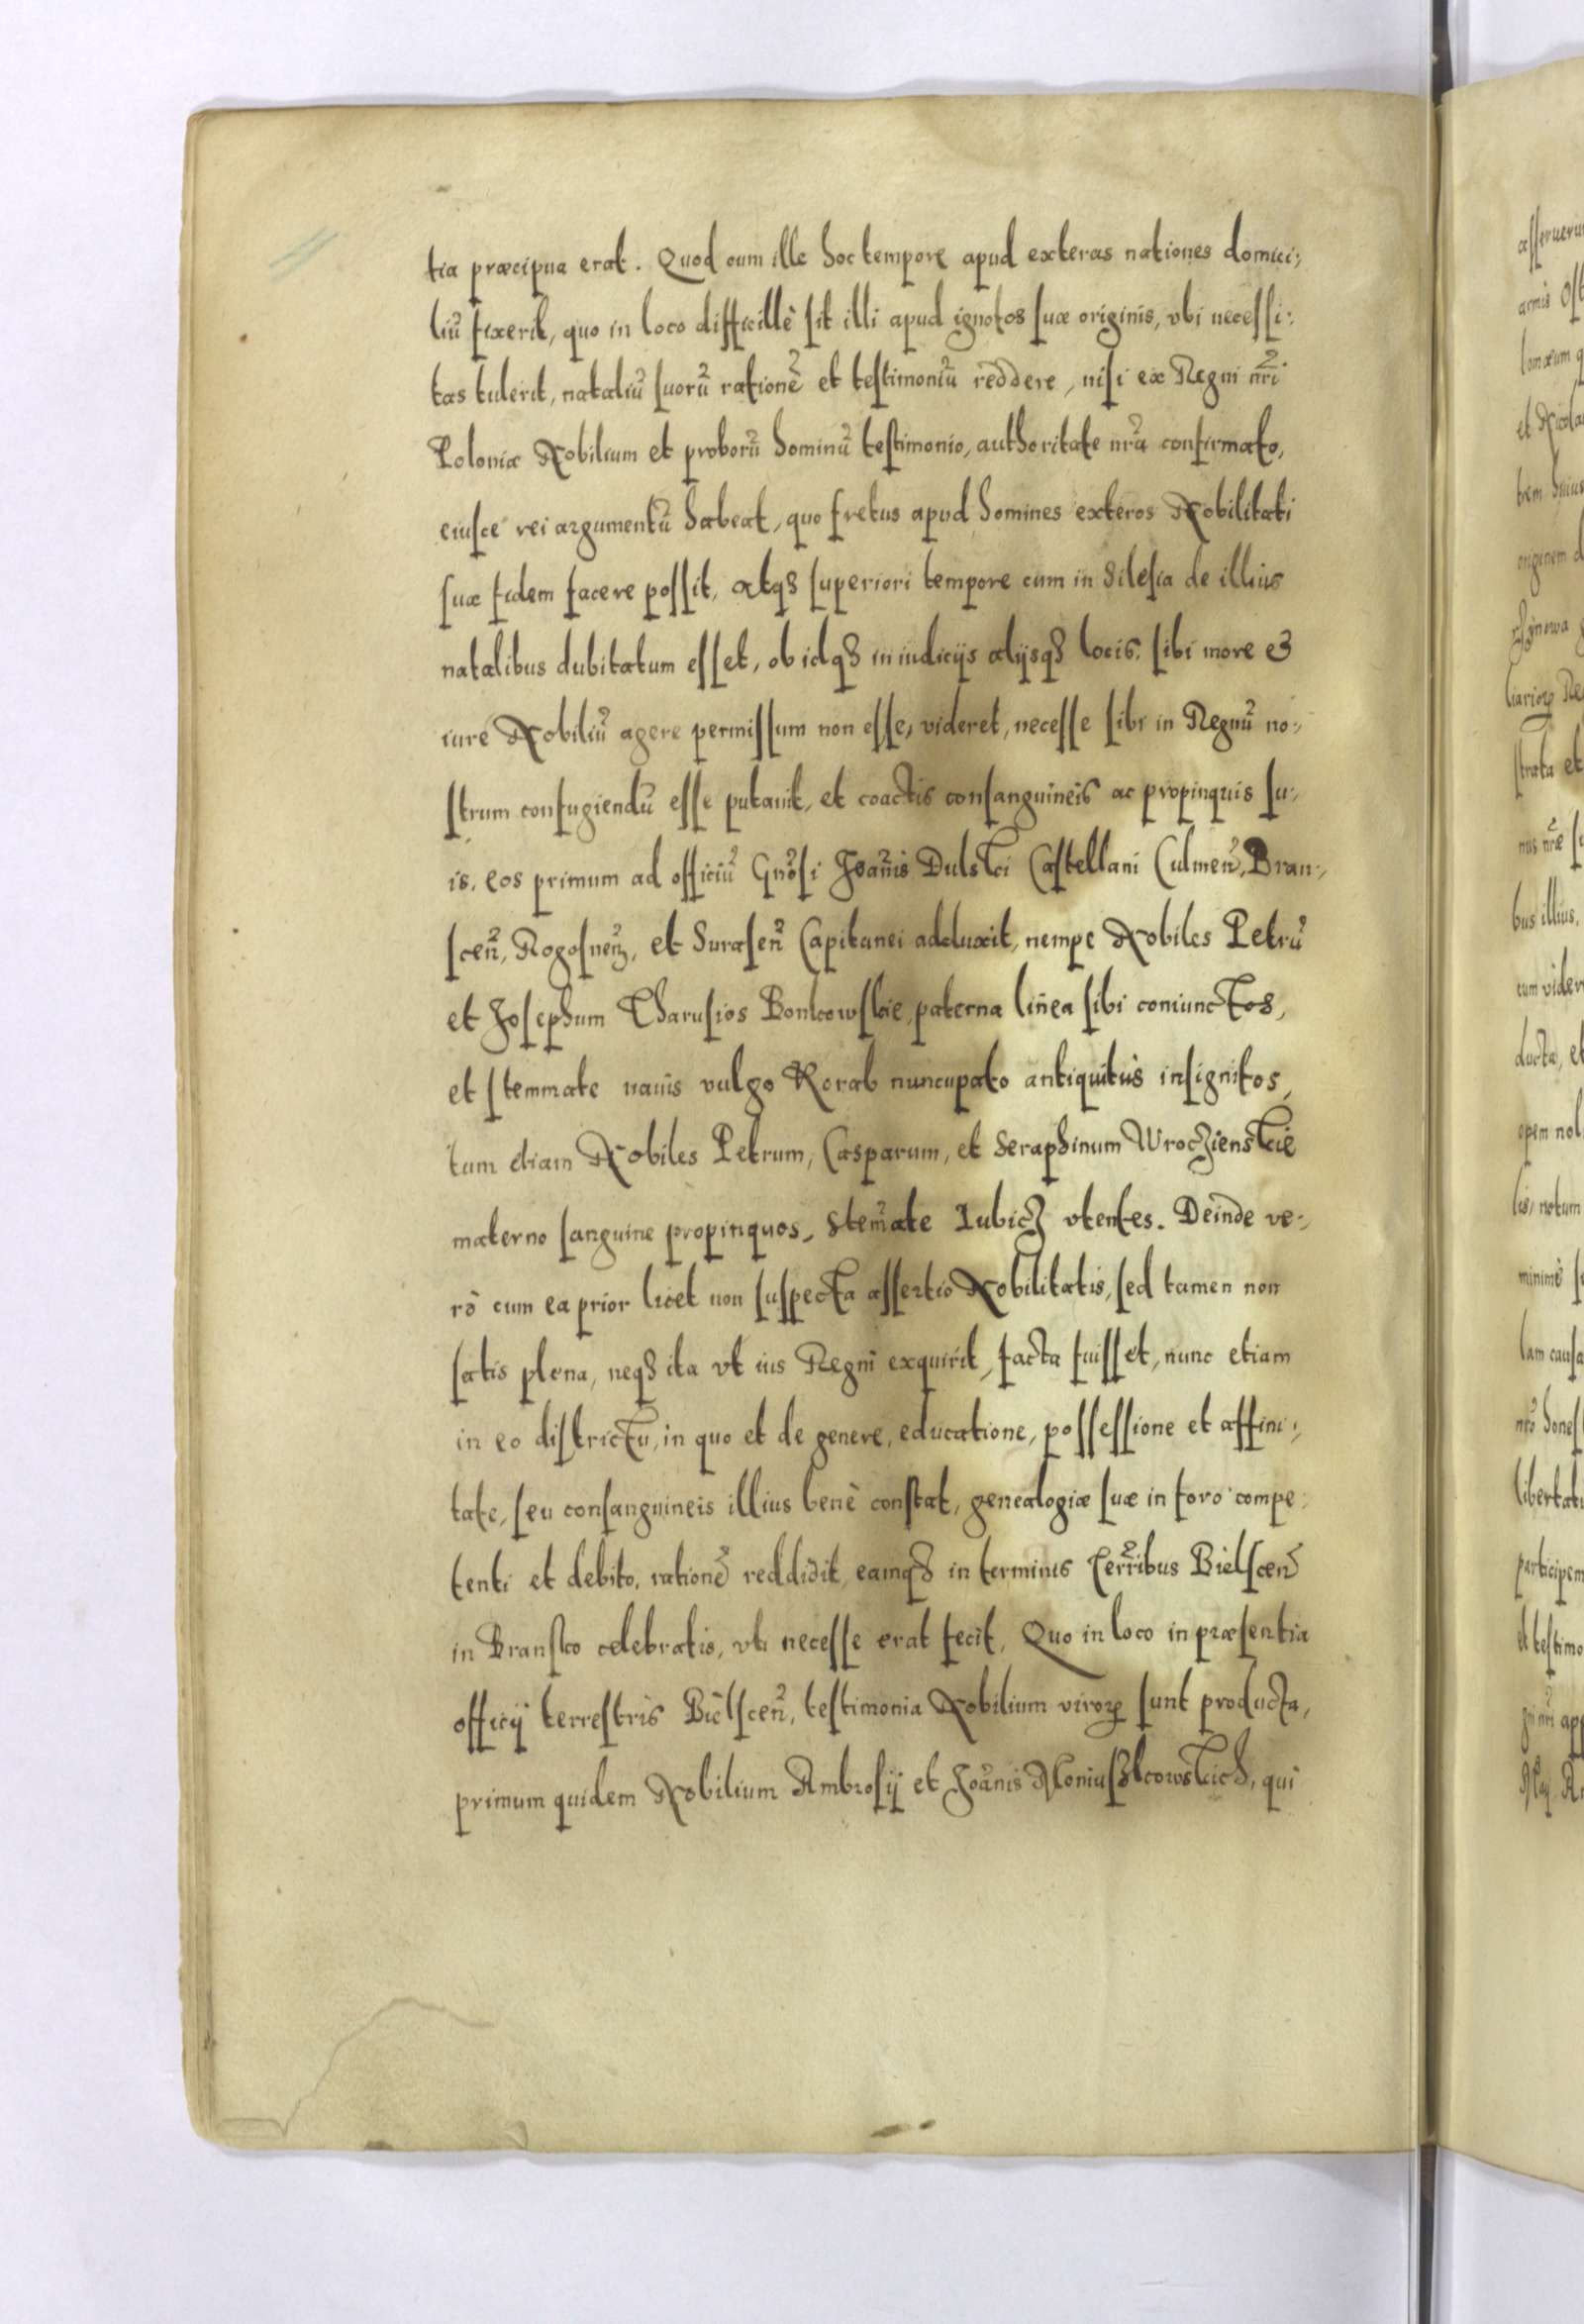 tia præcipua erat. Quod cum ille hoc tempore apud exteras nationes domici:,
liũ fixerit, quo in loco difficillè sit illi apud ignotos suæ originis, vbi necessi:
tas tulerit, nataliũ suorũ rationẽ et testimoniũ reddere, nisi ex Regni nr̃i
Poloniæ Nobilium et proborũ hominũ testimonio, authoritate nr̃a confirmato,
eiusce rei argumentũ habeat, quo fretus apud homines exteros Nobilitati
suæ fidem facere possit, atq3 superiori tempore cum in Silesia de illius
natalibus dubitatum esset, ob idq3 in iudicijs alijsq3 locis, sibi more et
iure Nobiliũ agere permissum non esse, videret, necesse sibi in Regnũ no:,
strum confugiendũ esse putauit, et coactis consanguineis ac propinquis su:,
is, eos primum ad officiũ Gñosi Joañis Dulski Castellani Culmeñ, Bran:,
sceñ, Rogosneñ, et Suraseñ Capitanei adduxit, nempe Nobiles Petrũ
et Josephum Tharusios Bonkowskie, paterna linea sibi coniunctos,
et stemmate nauis vulgo Korab nuncupato antiquitùs insignitos,
tum etiam Nobiles Petrum, Casparum, et Seraphinum Wroczienskie
materno sanguine propinquos, stem̃ate Lubicz vtentes. Deinde ve:,
rò cum ea prior licet non suspecta assertio Nobilitatis, sed tamen non
satis plena, neq3 ita vt ius Regni exquirit, facta fuisset, nunc etiam
in eo districtu, in quo et de genere, educatione, possessione et affini:,
tate, seu consanguineis illius benè constat, genealogiæ suæ in foro compe:
tenti et debito, rationẽ reddidit, eamq3 in terminis Terr̃ibus Bielsceñ
in Bransko celebratis, vti necesse erat fecit, Quo in loco in præsentia
officij terrestris Bielsceñ, testimonia Nobilium viroꝝ sunt producta,
primum quidem Nobilium Ambrosij et Joãnis Moniuszkowskich, qui